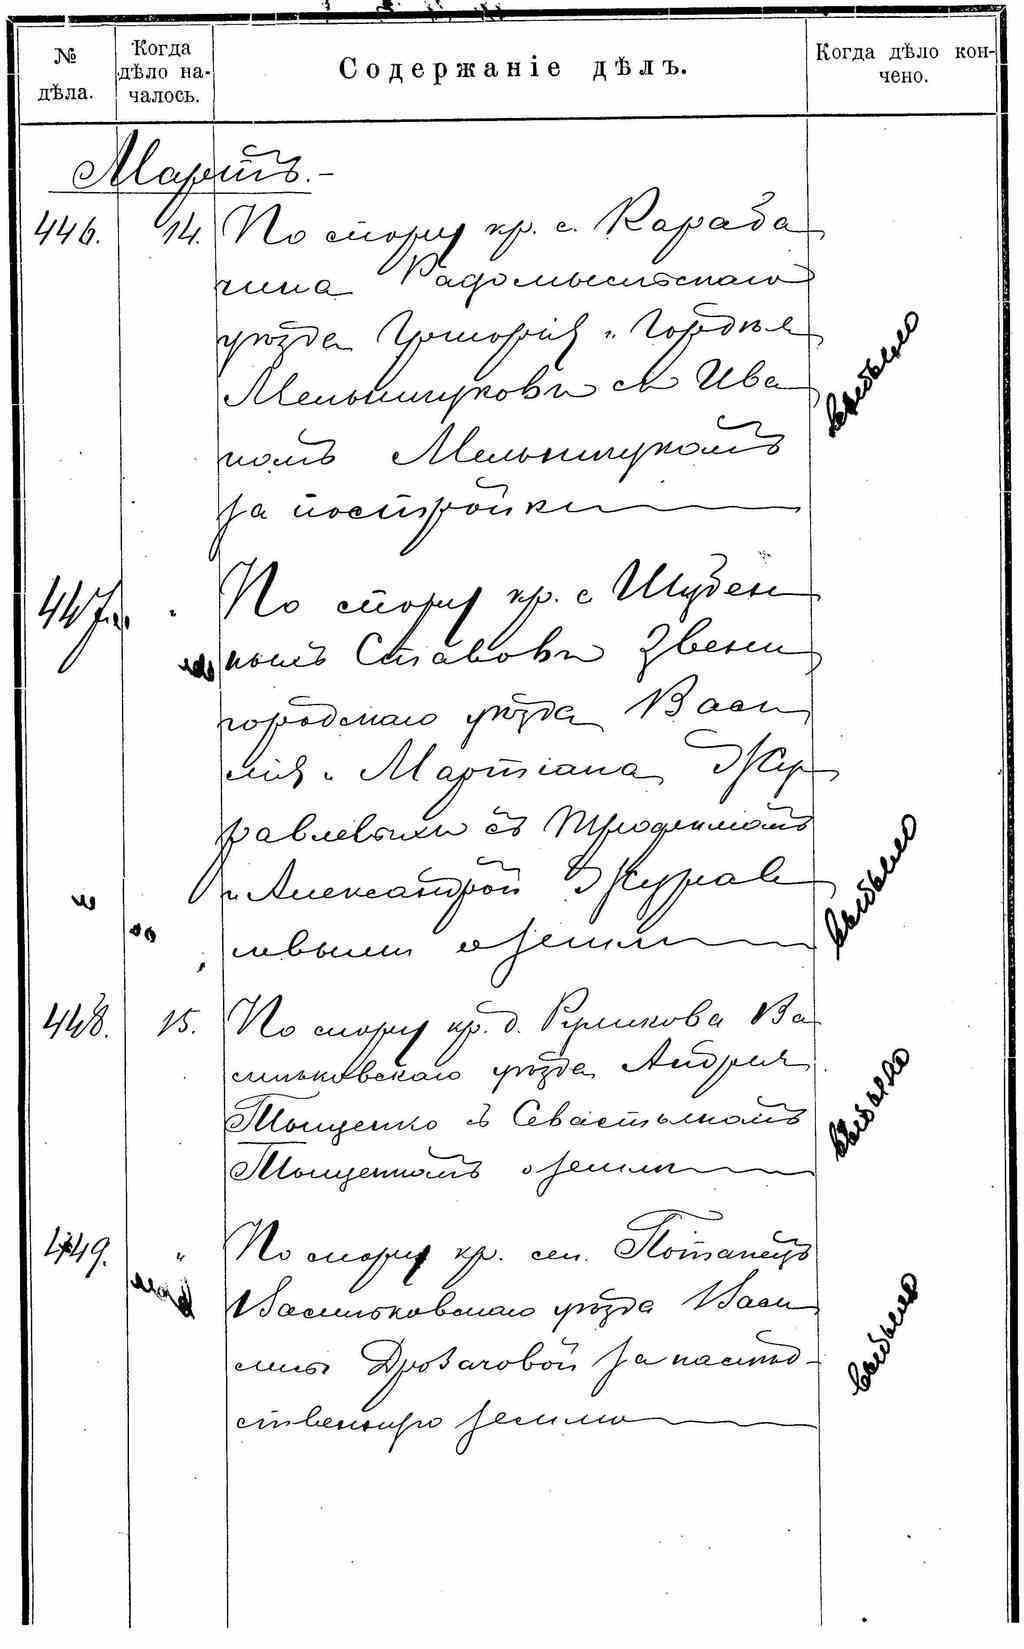 № дѣла.
Когда дѣло на-
чалось.
Содержаніе дѣлъ.
Когда дѣло кон-
чено.
Мартъ.-
446. 14. По спору кр. с. Караба
чина Радомысльскаго
уѣзда Григорія и Гордѣя
Мельничуковъ съ Ива
номъ Мельничукомъ
за постройки
выбыло
447. " По спору кр. с. Шубен
нымъ Ставовъ Звени
городскаго уѣзда Васи
лія и Мартіана Жу
равлевыхъ съ
и Александрой Журав
левыми о землѣ
выбыло
448. 15. По спору кр. д. Руликова Ва
сильковскаго уѣзда Андрея
Тыщенко съ Севастьяномъ
Тыщенкомъ о землѣ
выбыло
449. " По спору кр. сел. Потапецъ
Васильковскаго уѣзда Васи
Дрозачовой за наслѣд-
ственную землю
выбыло